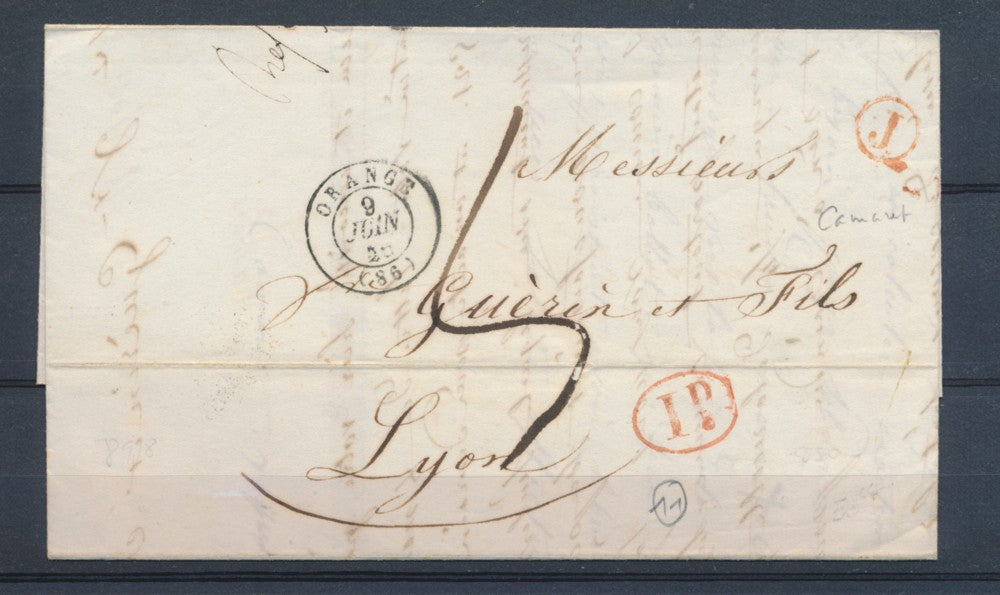 J
Messieurs
Camaret
ORANGE
9
JUIN
(86)
Guérin et Fils
5
1D
Lyon
11